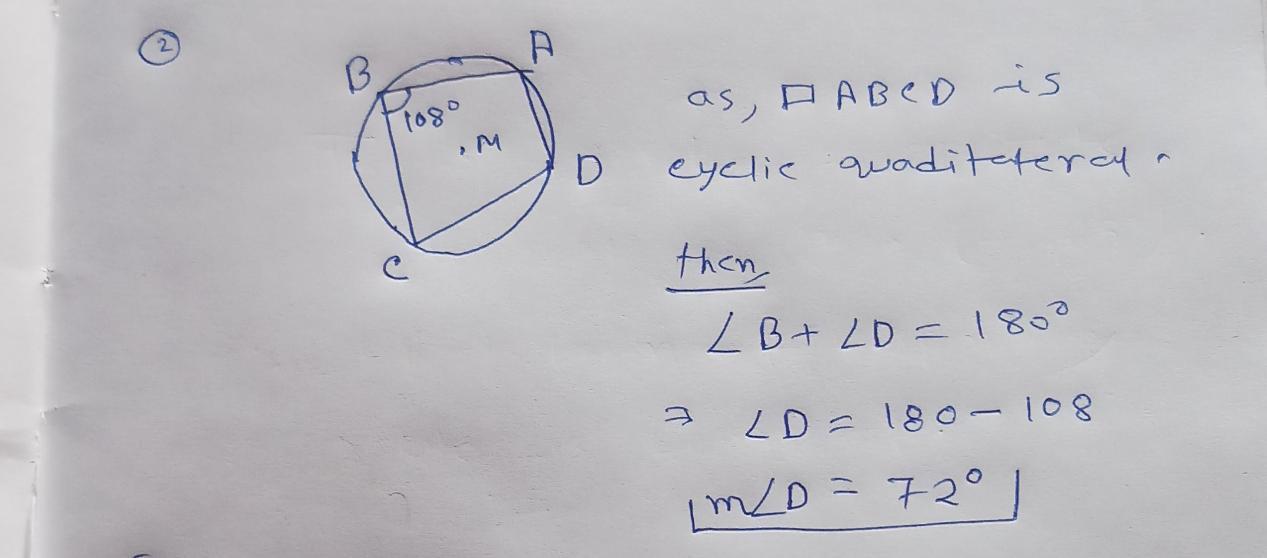 2
A
B
108°
.M
D
C
as, □ ABCD is
cyclic quaditeteral.
then,
∠B + ∠D = 180°
⇒ ∠D = 180 - 108
m∠D = 72°